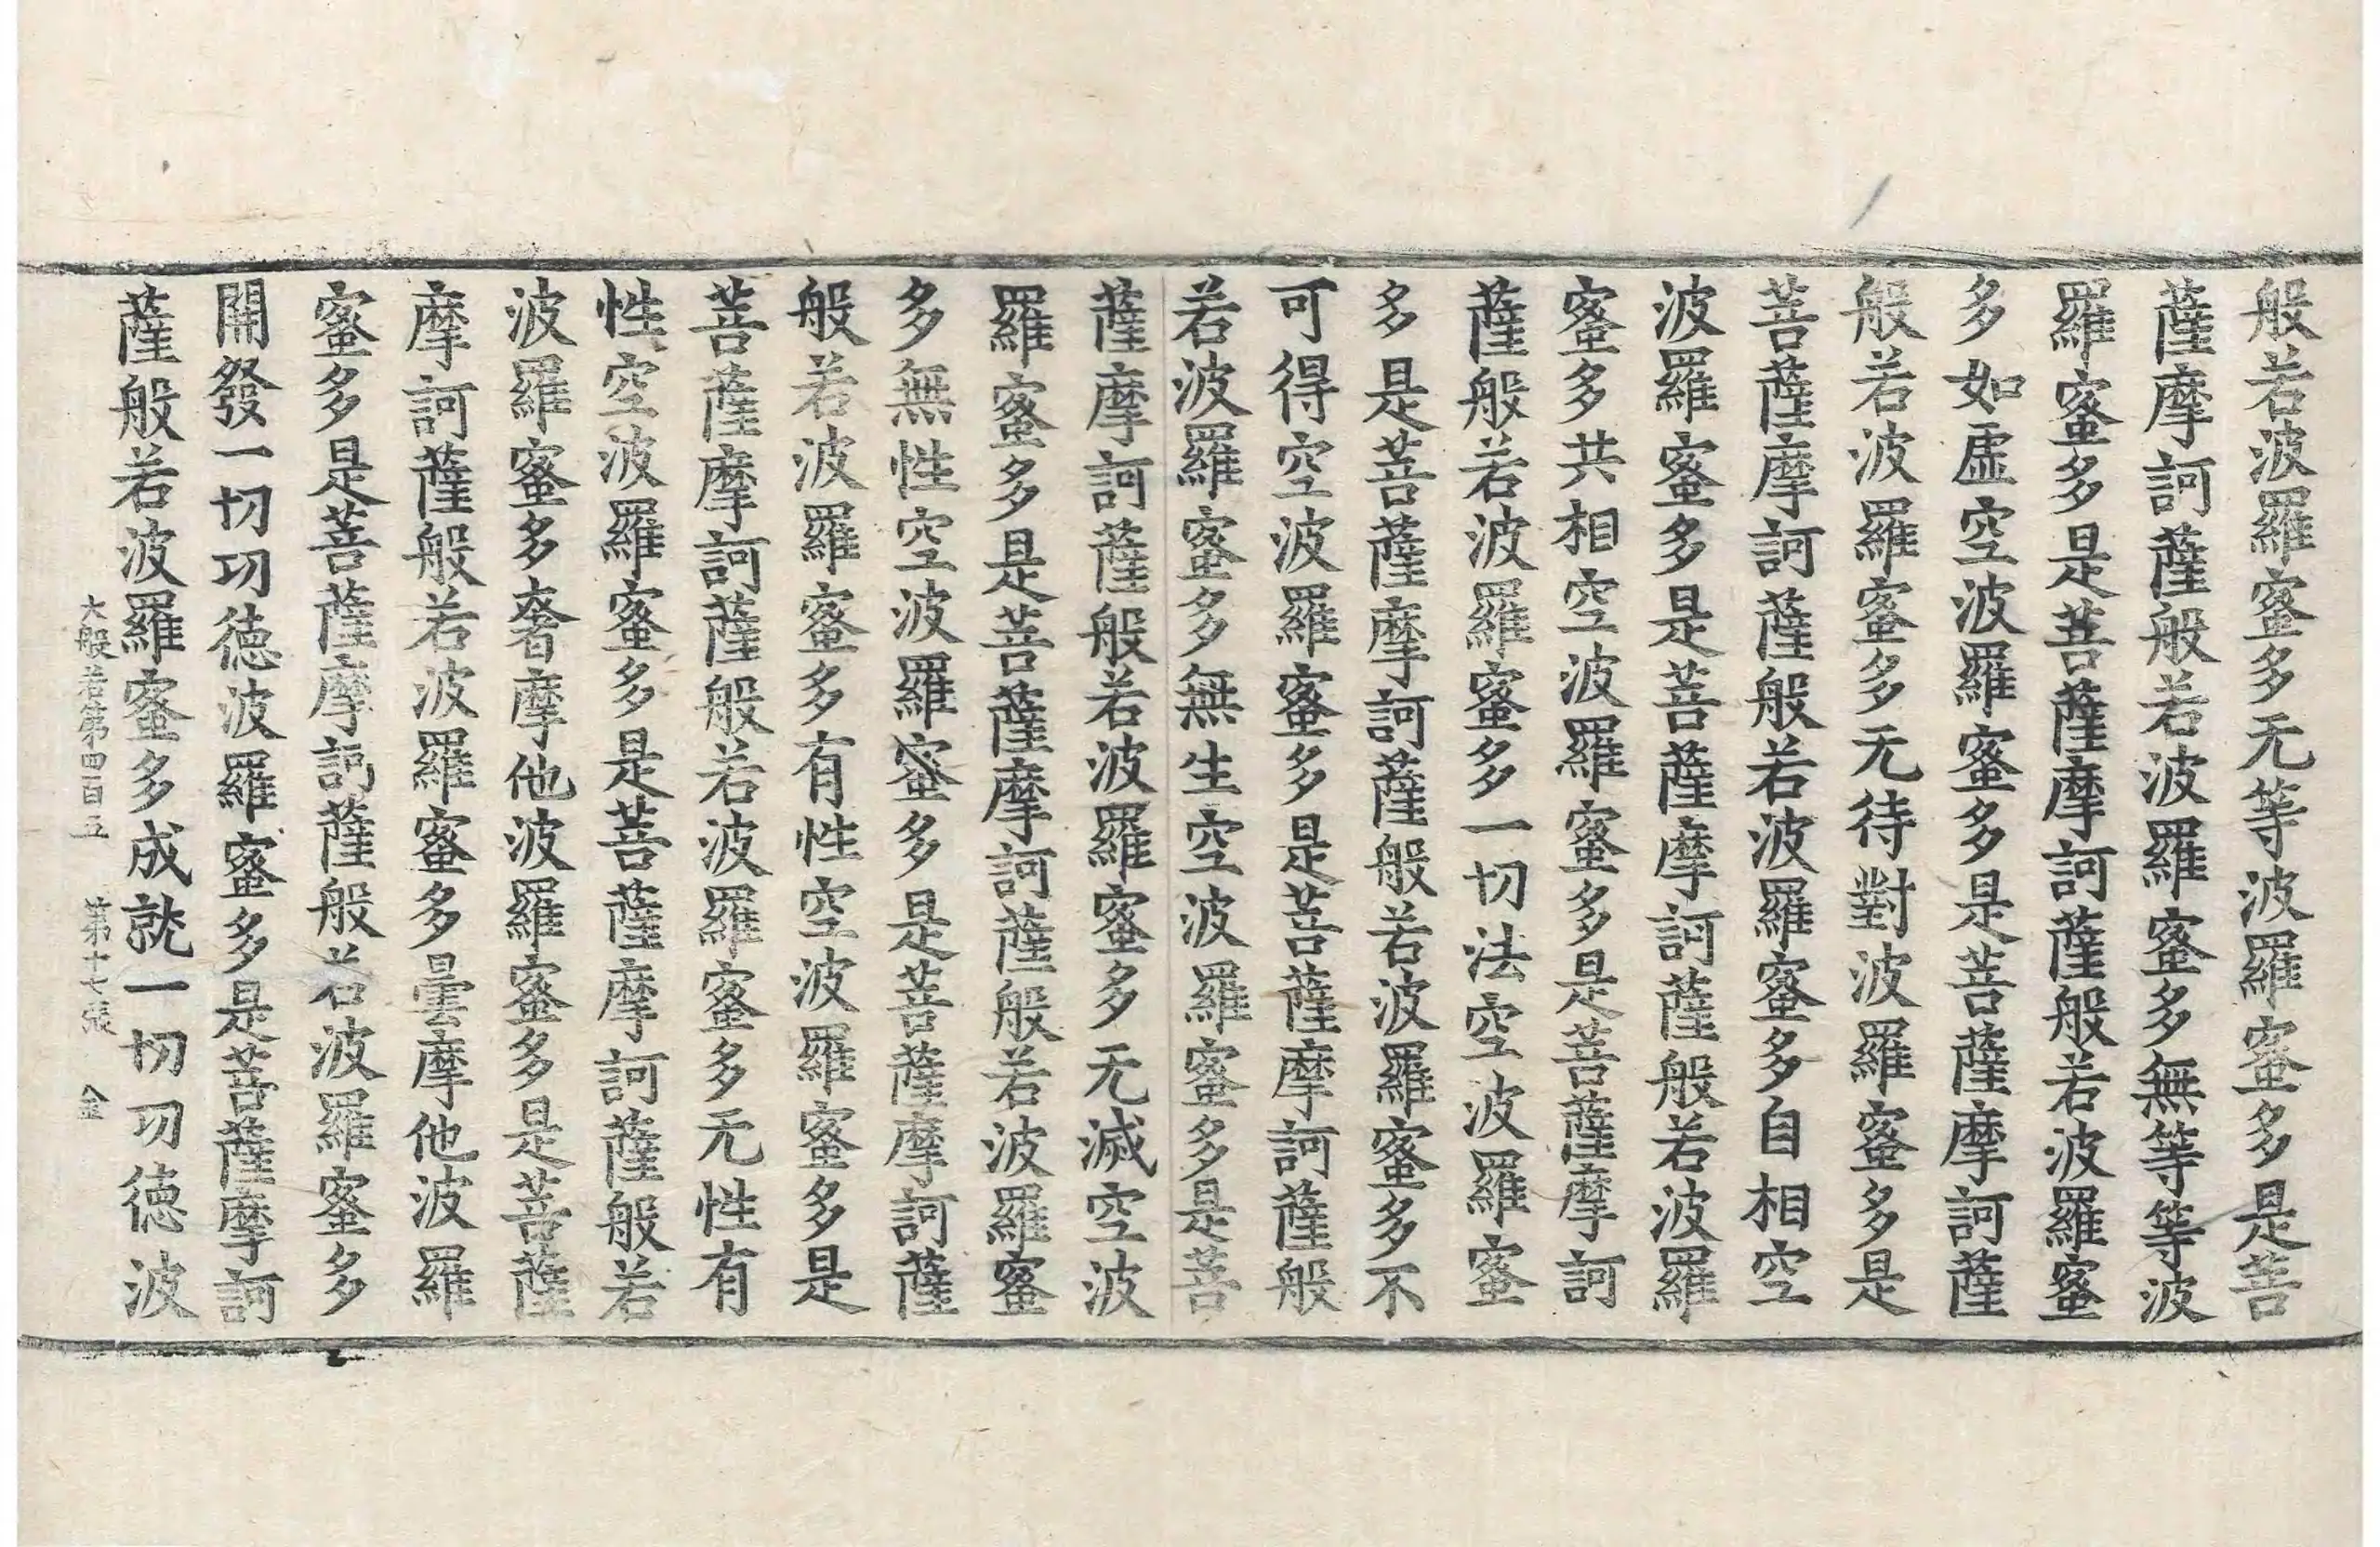 般若波羅蜜多无等波羅蜜多是菩
薩摩訶薩般若波羅蜜多無等等波
羅蜜多是菩薩摩訶薩般若波羅蜜
多如虛空波羅蜜多是菩薩摩訶薩
般若波羅蜜多无待對波羅蜜多是
菩薩摩訶薩般若波羅蜜多自相空
波羅蜜多是菩薩摩訶薩般若波羅
蜜多共相空波羅蜜多是菩薩摩訶
薩般若波羅蜜多一切法空波羅蜜
多是菩薩摩訶薩般若波羅蜜多不
可得空波羅蜜多是菩薩摩訶薩般
若波羅蜜多無生空波羅蜜多是菩
薩摩訶薩般若波羅蜜多无滅空波
羅蜜多是菩薩摩訶薩般若波羅蜜
多無性空波羅蜜多是菩薩摩訶薩
般若波羅蜜多有性空波羅蜜多是
菩薩摩訶薩般若波羅蜜多无性有
性空波羅蜜多是菩薩摩訶薩般若
波羅蜜多奢摩他波羅蜜多是菩薩
摩訶薩般若波羅蜜多曇摩他波羅
蜜多是菩薩摩訶薩般若波羅蜜多
開發一切功德波羅蜜多是菩薩摩訶
薩般若波羅蜜多成就一切功德波
大般若第四百五 第十七張 金